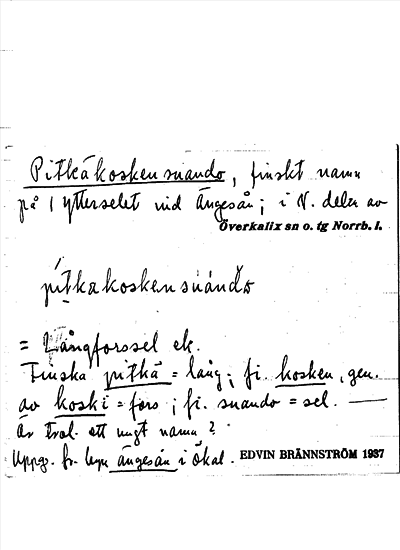 Pitkäkoskensuando, finskt namn
på 1 ytterselet vid Ängesån; i N. delen av
Överkalix sn o. tg Norrb. l.
pitkakoskensuando
= Långforssel ek.
Finska pitkä = lång; fi. kosken, gen.
av koski = fors; fi. suando = sel. —
Är trol. ett ungt namn?
Uppg. fr. byn Ängesån i Ökal.
EDVIN BRÄNNSTRÖM 1937